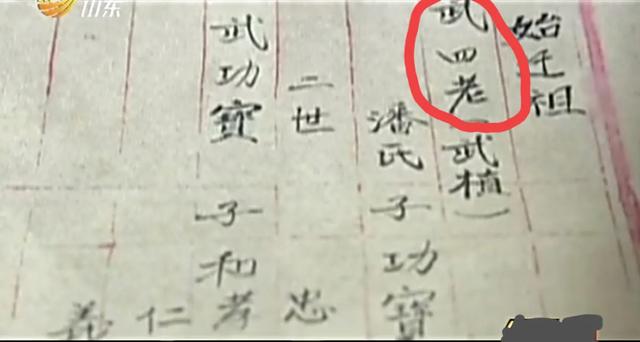 山东
始迁祖
武四老(武植)
潘氏 子功寶
二世 忠
武功寶 子和孝
仁
義